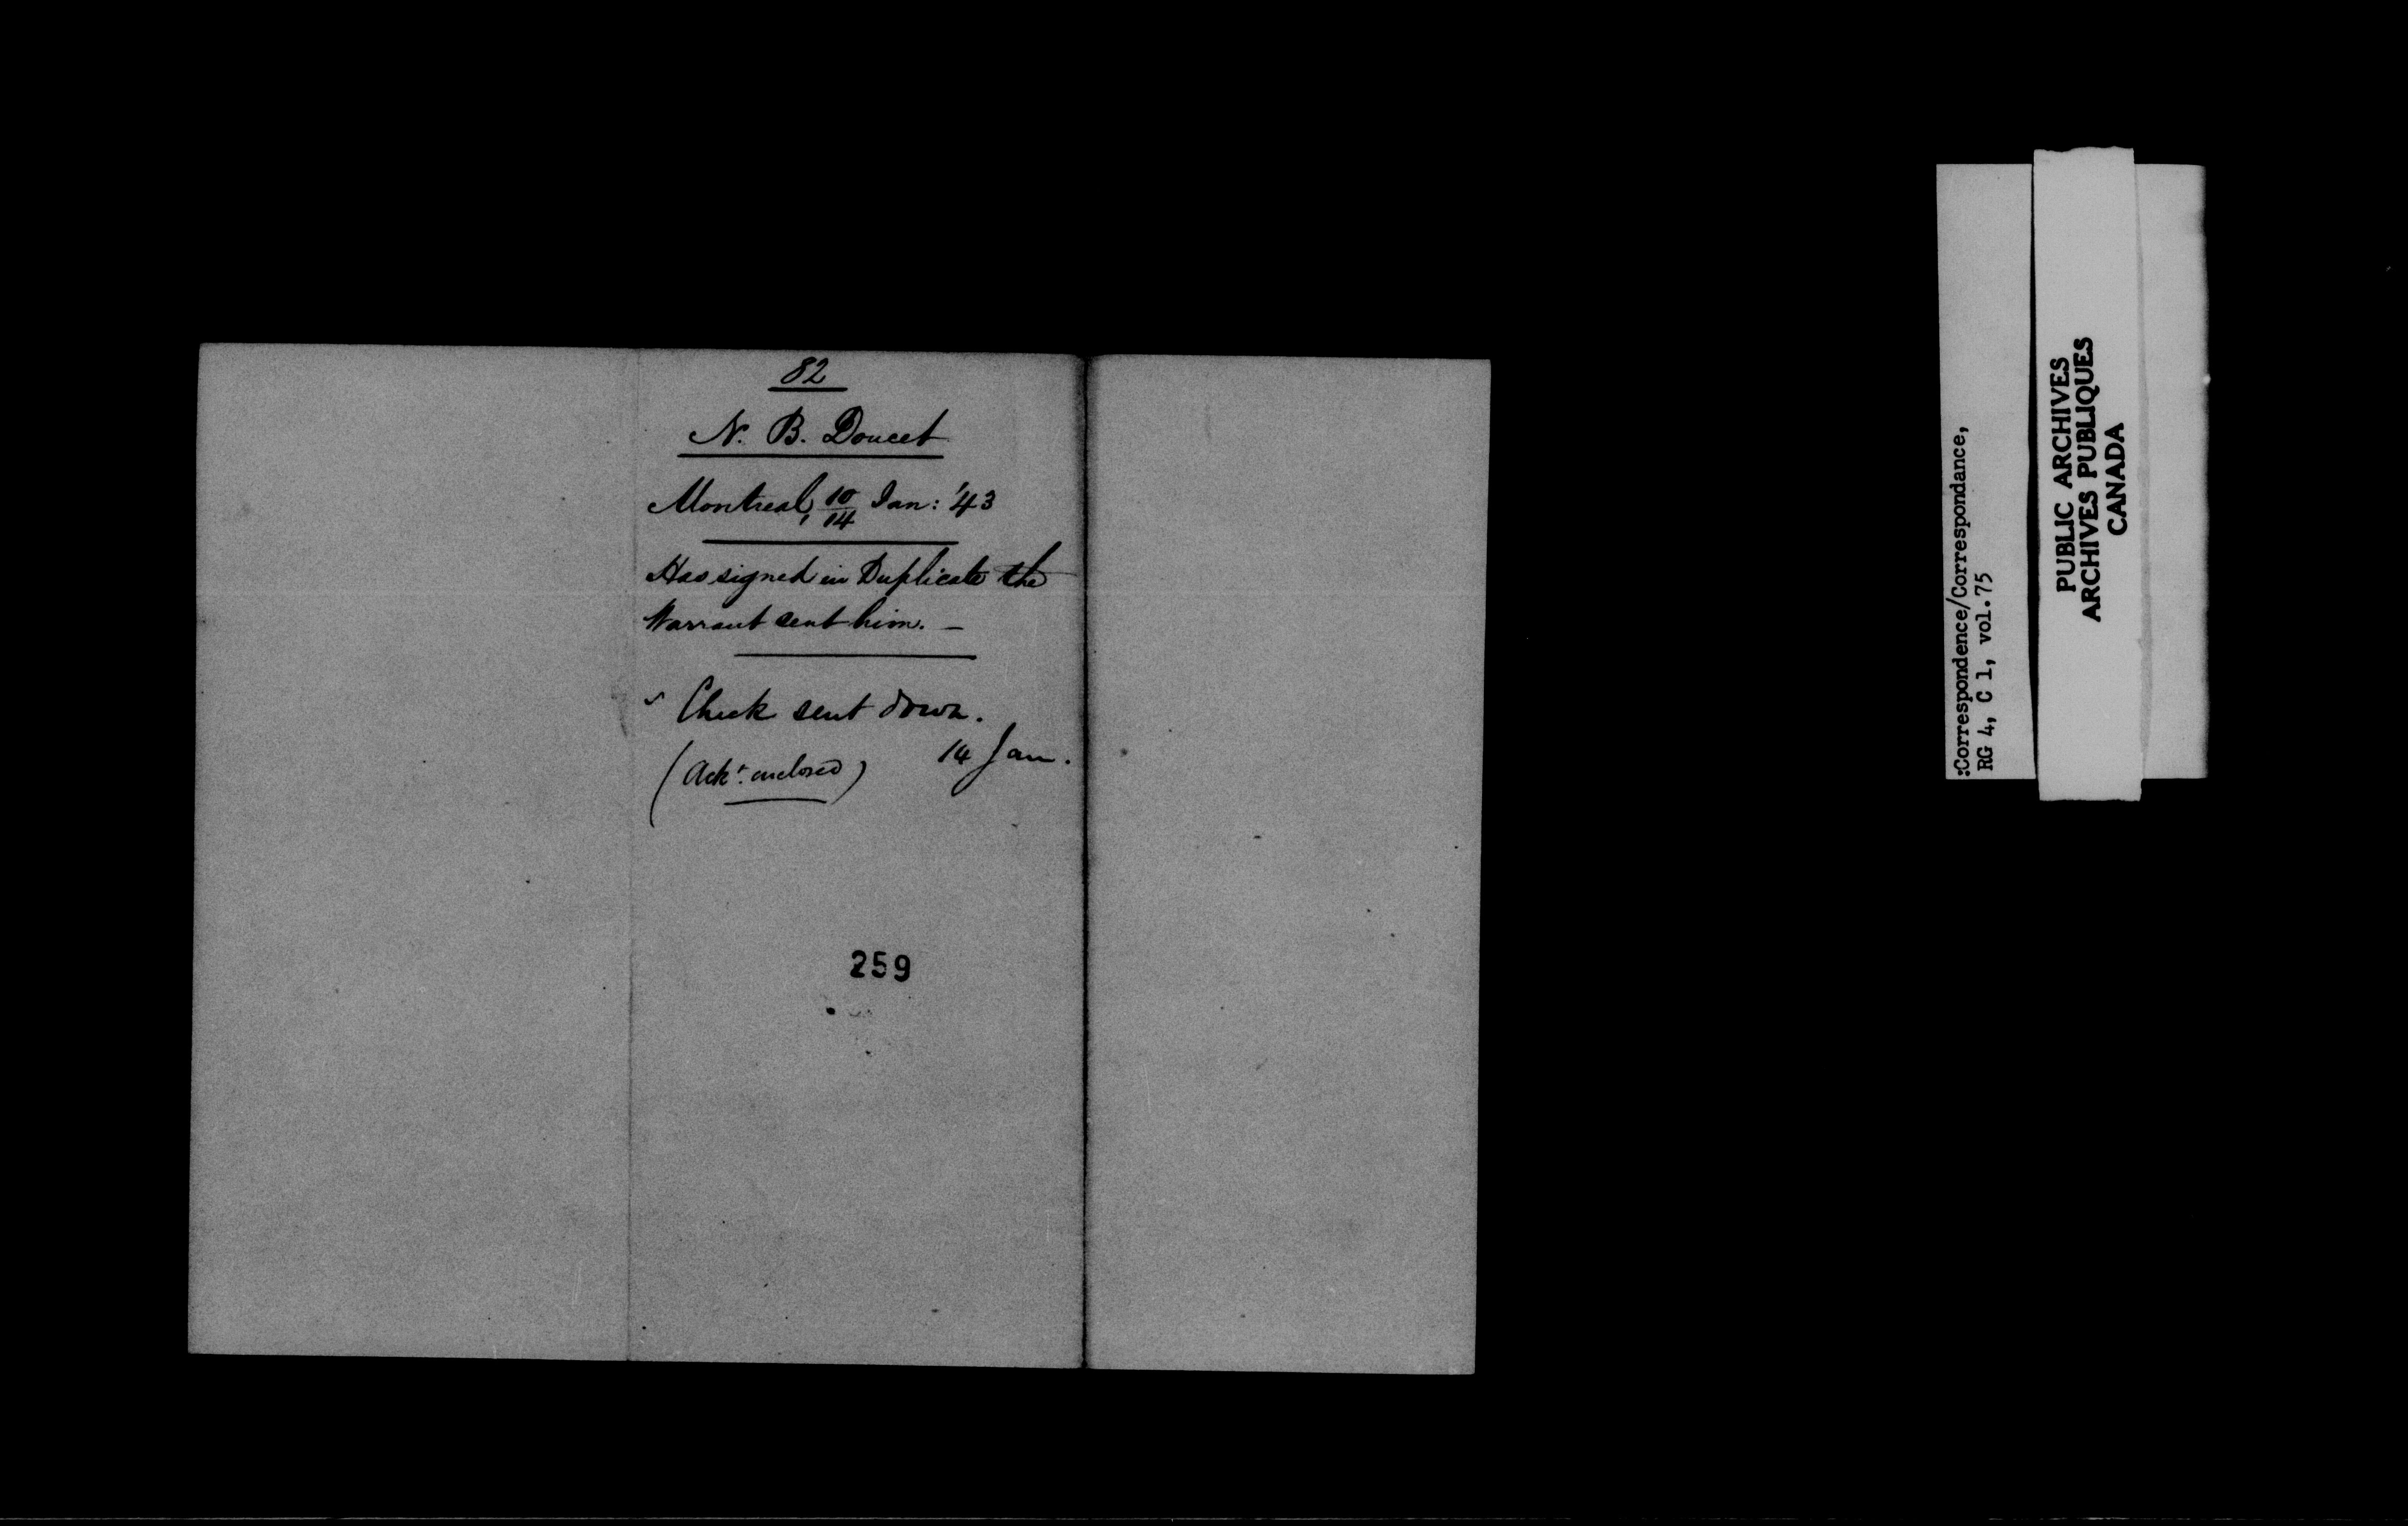 82
N. B. Doucet
Montreal, 10/14 Jan: '43
Has signed in Duplicate the
Warrant sent him. —
Check sent down.
14 Jan.
(Ackt. enclosed)
259
:Correspondence/Correspondance,
RG 4, C 1, vol.75
PUBLIC ARCHIVES
ARCHIVES PUBLIQUES
CANADA